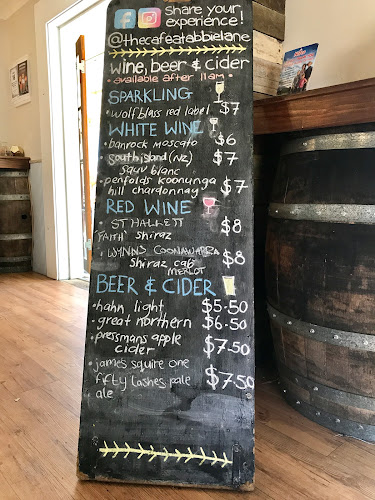 share your
experience!
@thecafeatabbielane
wine, beer & cider
• available after 11am •
SPARKLING
• wolfblass red label $7
WHITE WINE
• banrock moscato $6
• southisland (NZ) $7
sauv blanc
• penfolds koonunga
hill chardonnay $7
RED WINE
• ST HALLETT $8
FAITH shiraz
• WYNNS COONAWARRA $8
Shiraz cab
MERLOT
BEER & CIDER
• hahn light $5.50
• great northern $6.50
• pressmans apple
cider $7.50
james squire one
fifty lashes pale $7.50
• ale